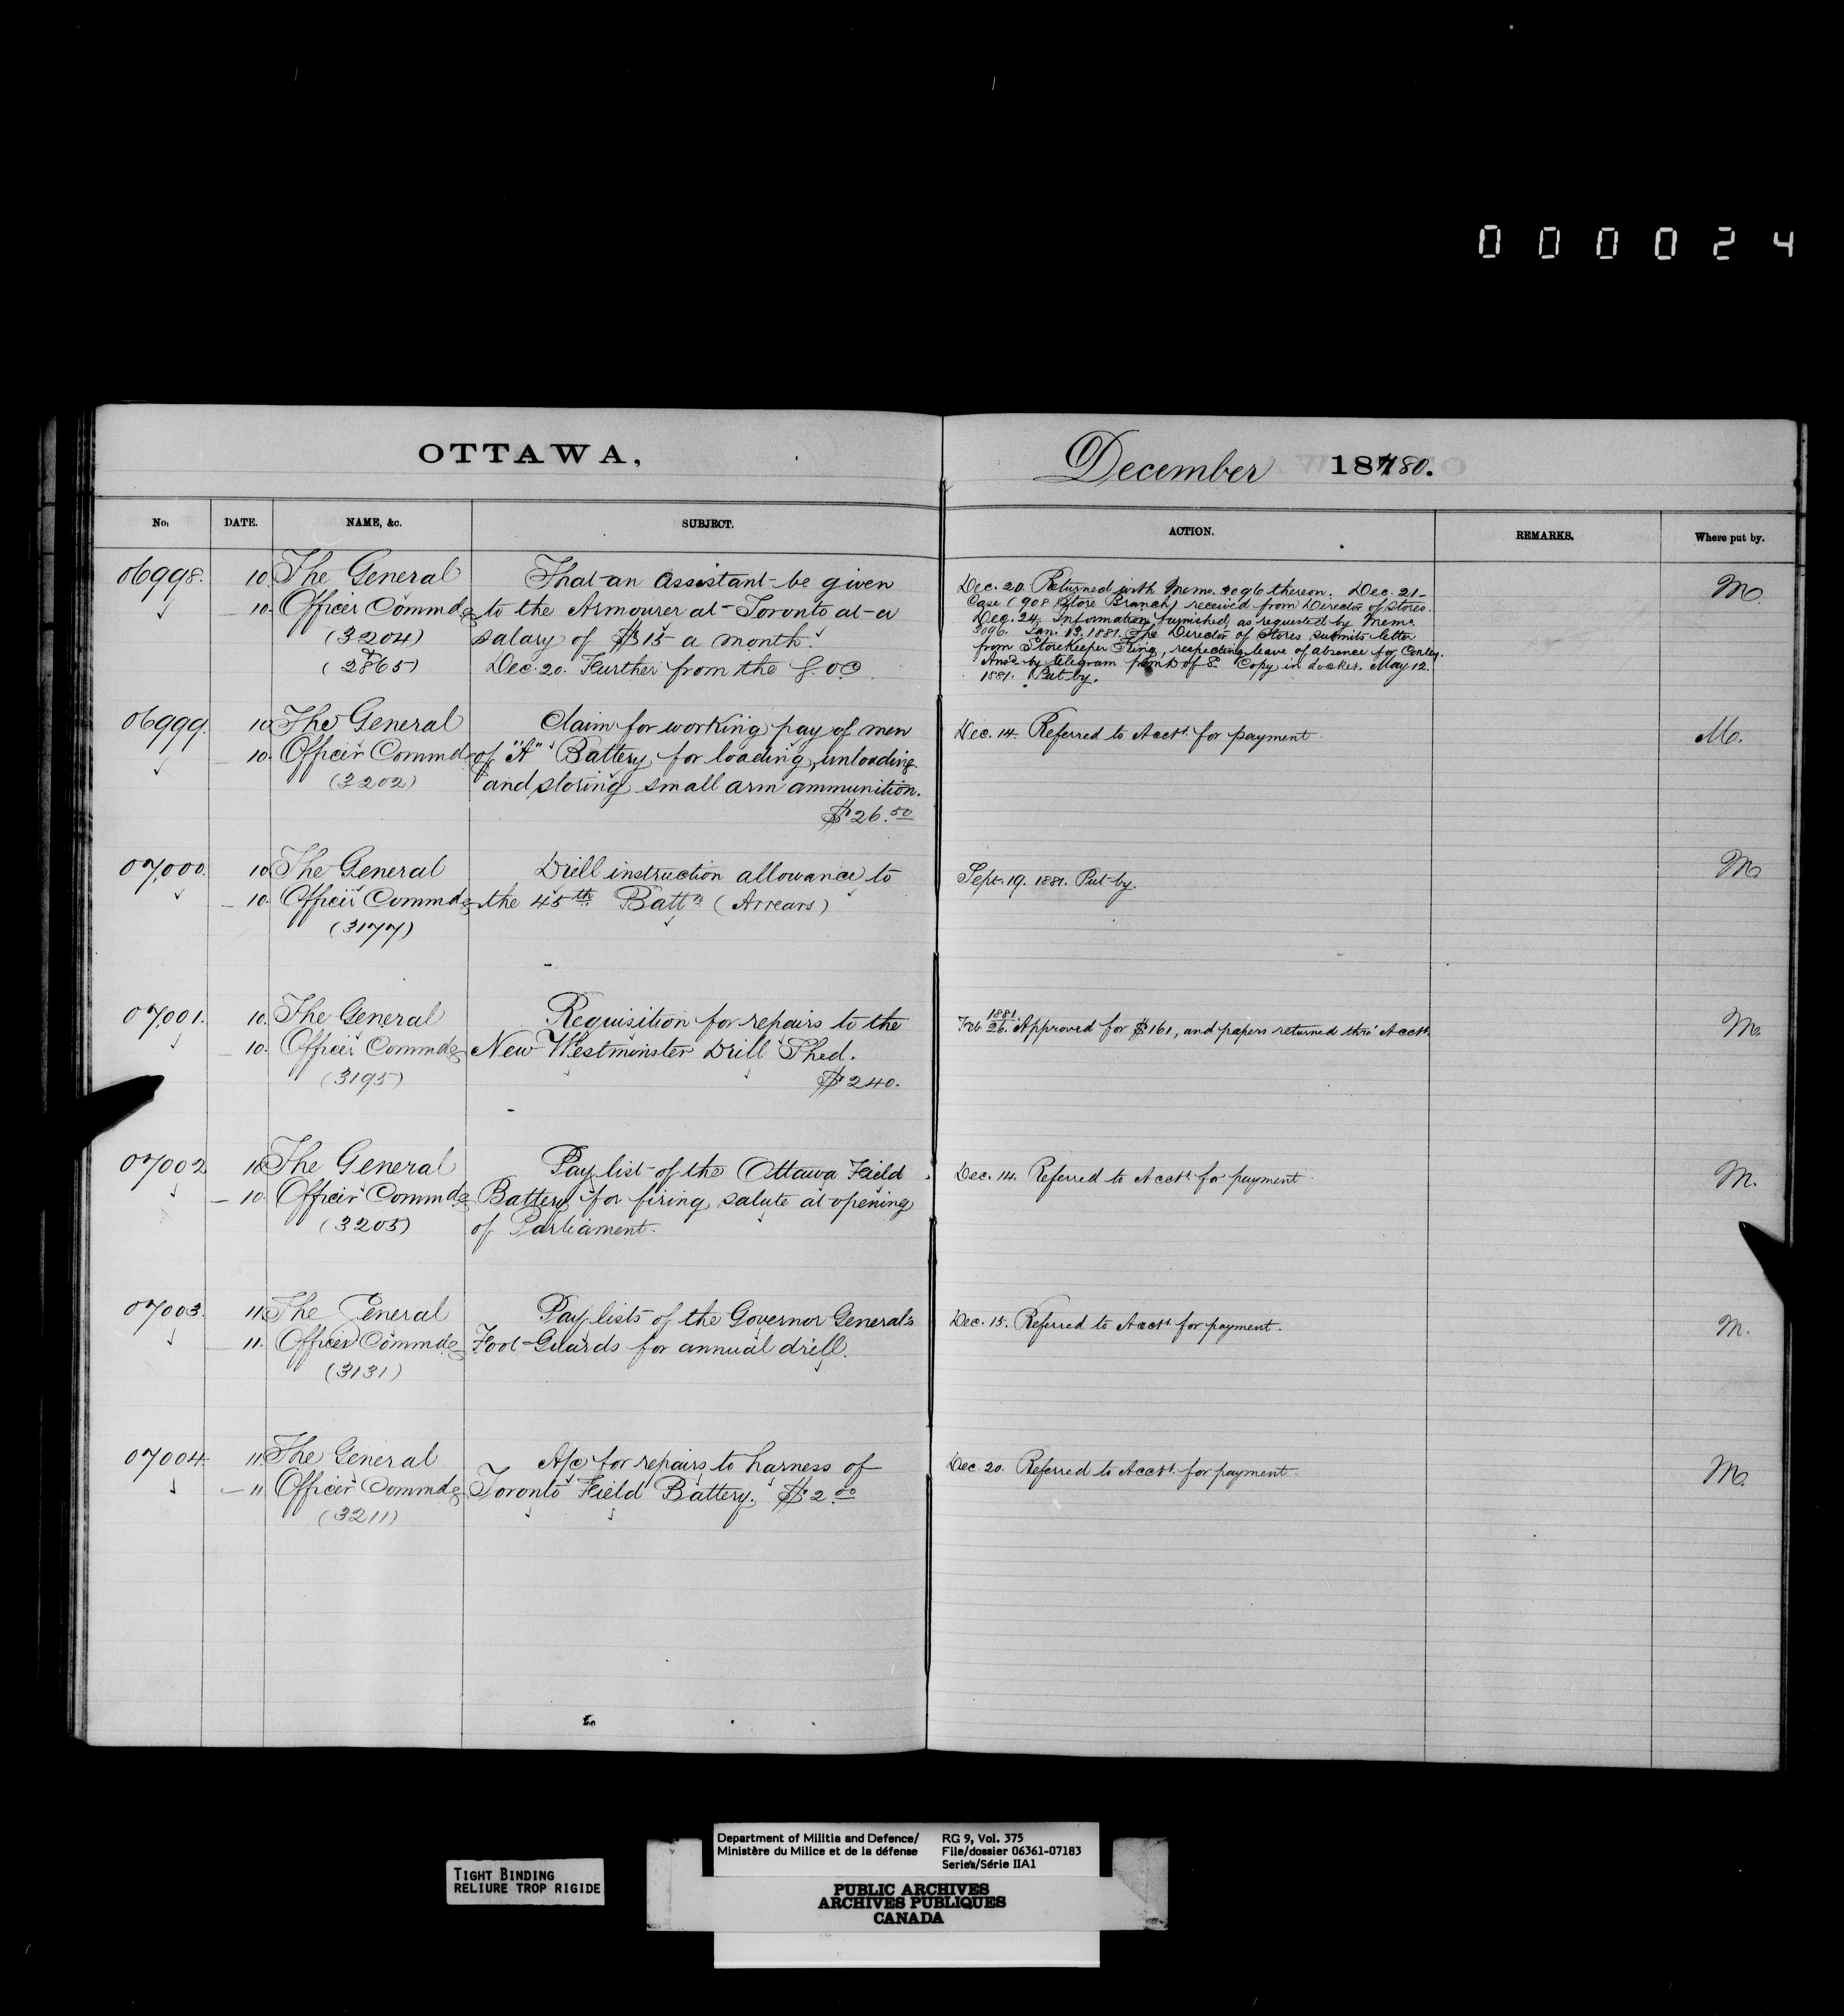 000024
OTTAWA,
December 18780.
No. DATE. NAME, &c. SUBJECT. ACTION. REMARKS. Where put by.
06998. 10. The General That an Assistant be given
10. Officer Commdg to the Armourer at Toronto at a
(3204) salary of $15 a month.
(2865) Dec. 20. Further from the G.O.C.
Dec. 20. Returned with Memo. 3096 thereon. Dec. 21
Case (908 Store Branch) received from Director of Stores.
Dec. 24. Information furnished, as requested by Memo
3096. Jan. 13, 1881. The Director of Stores submits letter
from Storekeeper, respecting leave of absence for
Ansd by telegram from D of S. Copy in docket. May 12.
1881. Put by.
M.
06999. 10. The General Claim for working pay of men
10. Officer Commdg of "A" Battery for loading, unloading
(3202) and storing small arm ammunition.
$26.50
Dec. 14. Referred to Acctt. for payment.
M.
07,000. 10. The General Drill instruction allowance to
10. Officer Commdg the 45th Battn (Arrears)
(3177)
Sept. 19. 1881. Put by.
M
07,001. 10. The General Requisition for repairs to the
10. Officer Commdg New Westminster Drill Shed.
(3195) $240.
1881.
Feb 26. Approved for $161, and papers returned thro' Acctt.
M.
07002 10 The General Pay list of the Ottawa Field
10. Officer Commdg Battery for firing salute at opening
(3205) of Parliament.
Dec. 14. Referred to Acctt. for payment.
M.
07003. 11. The General Pay lists of the Governor Generals
11. Officer Commdg Foot Guards for annual drill.
(3131)
Dec. 15. Referred to Acctt for payment.
M.
07004. 11. The General A/c for repairs to harness of
11 Officer Commdg Toronto Field Battery. $2.00
(3211)
Dec. 20. Referred to Acctt. for payment.
M.
TIGHT BINDING
RELIURE TROP RIGIDE
Department of Militia and Defence/
Ministère du Milice et de la défense
RG 9, Vol. 375
File/dossier 06361-07183
Series/Série IIA1
PUBLIC ARCHIVES
ARCHIVES PUBLIQUES
CANADA